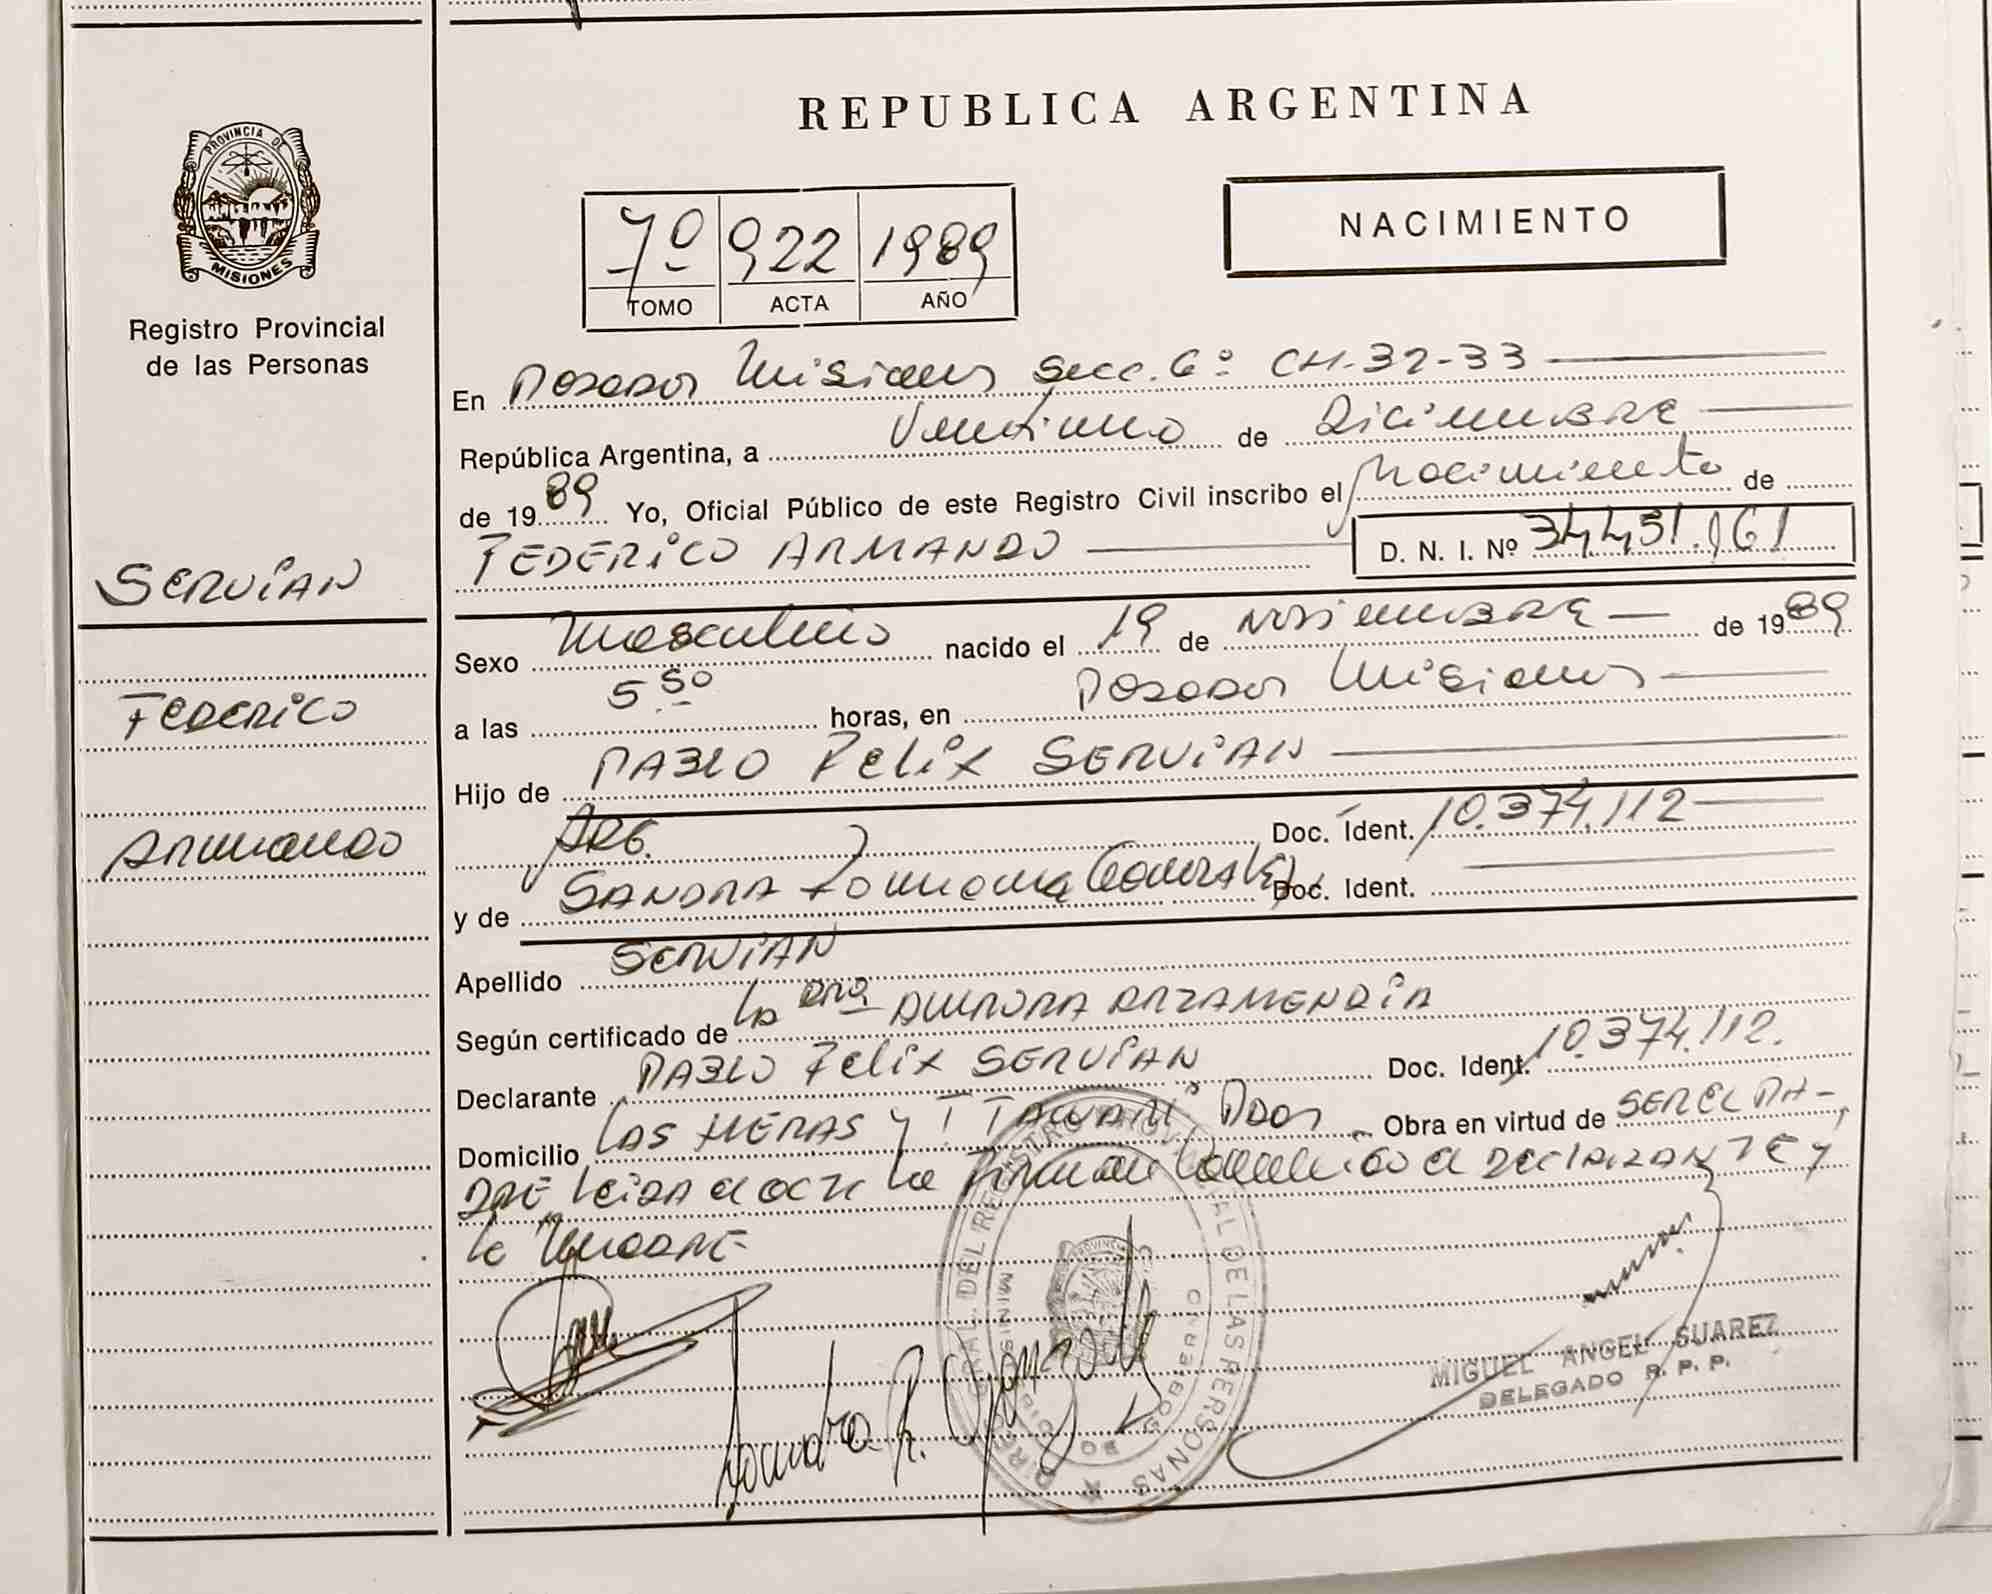 PROVINCIA DE
MISIONES
Registro Provincial
de las Personas
SERVIAN
FEDERICO
ARMANDO
REPUBLICA ARGENTINA
7º 922 1989
TOMO ACTA AÑO
NACIMIENTO
En Posadas Misiones Secc. 6º CH. 32-33
República Argentina, a Ventiuno de Diciembre
de 1989 Yo, Oficial Público de este Registro Civil inscribo el Nacimiento de
FEDERICO ARMANDO D. N. I. Nº 34.451.161
Sexo Masculino nacido el 19 de Noviembre de 1989
a las 5.50 horas, en Posadas Misiones
Hijo de PABLO Felix SERVIAN
ARG. Doc. Ident. 10.374.112
y de SANDRA Gonzalez Doc. Ident.
Apellido SERVIAN
Según certificado de la Dra. AURORA ARZAMENDIA
Declarante PABLO Felix SERVIAN Doc. Ident. 10.374.112.
Domicilio LAS HERAS y Pdas Obra en virtud de SER EL PA-
DRE leida el acta la firman conmigo el DECLARANTE y
la MADRE
Sandra R. Gonzalez
DIREC. GRAL. DEL REGISTRO PROVINCIAL DE LAS PERSONAS
PROVINCIA
MIGUEL ANGEL SUAREZ
DELEGADO R. P. P.